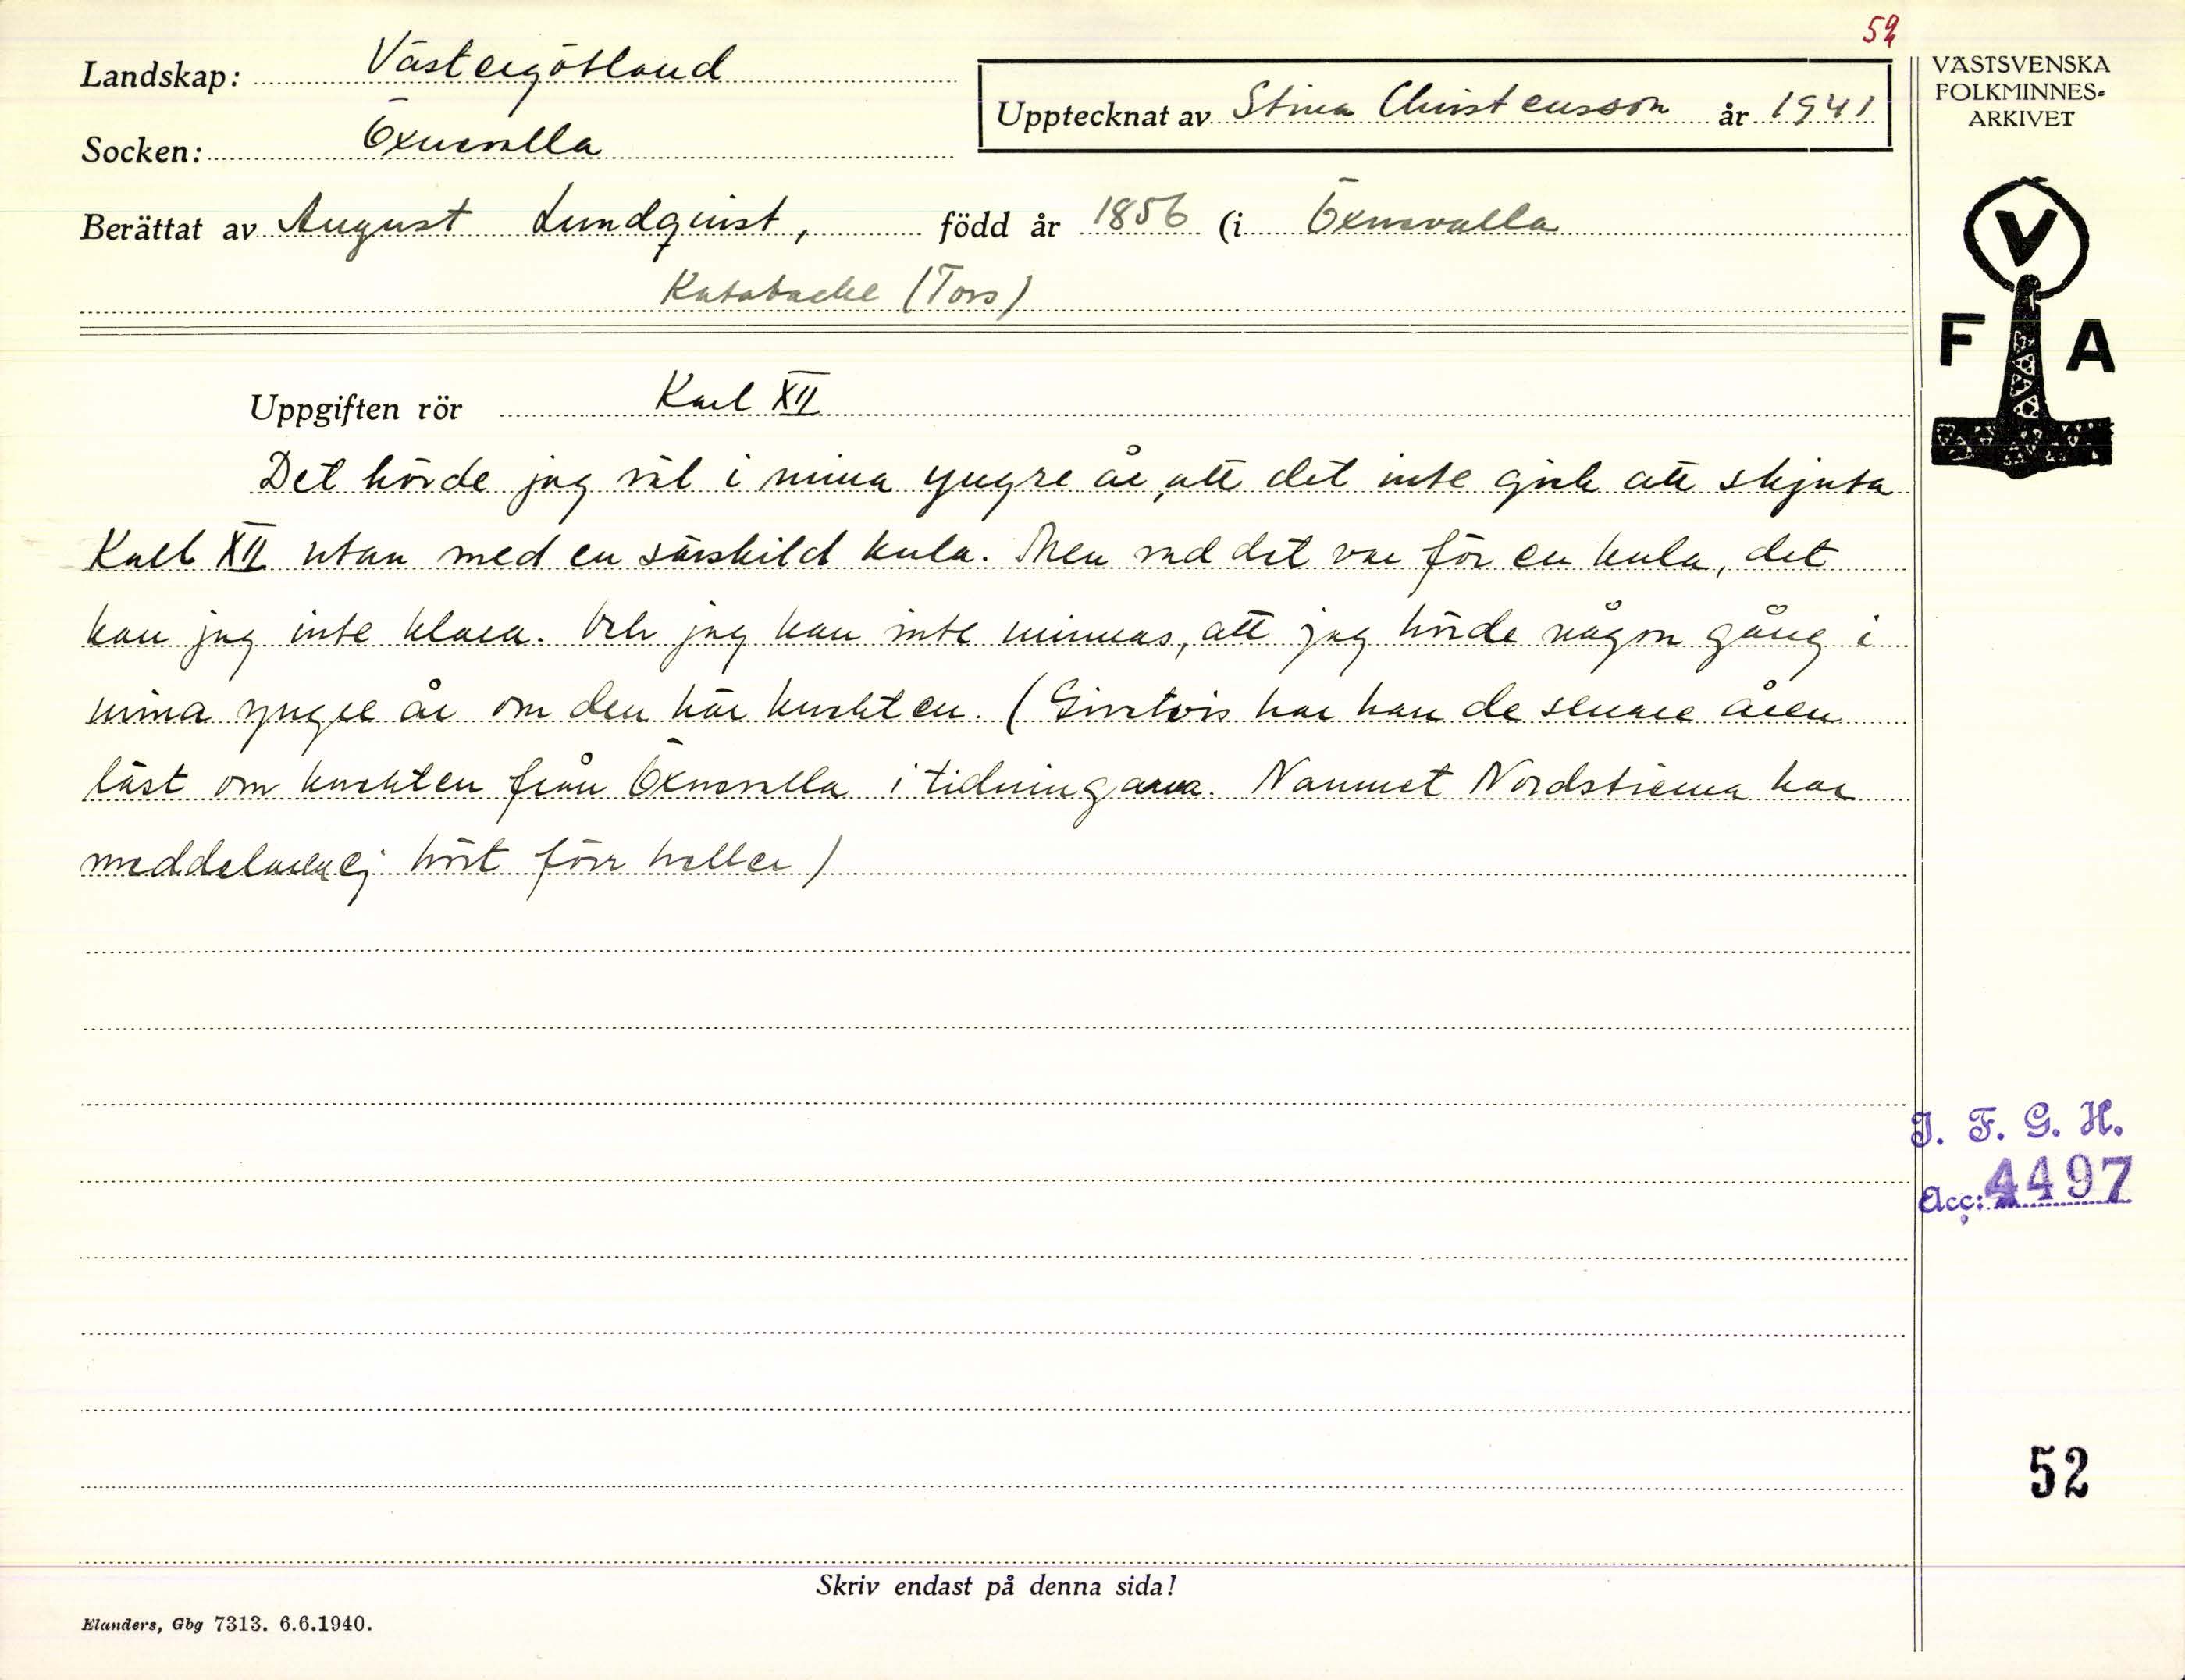 59
Landskap: Västergötland
Upptecknat av Stina Christensson år 1941
Socken: Öxnevalla
Berättat av August Lundqvist, född år 1856 (i Öxnevalla
(Tors)
VÄSTSVENSKA
FOLKMINNES-
ARKIVET
V
F A
Uppgiften rör Karl XII
Det hörde jag väl i mina yngre år, att det inte gick att skjuta
Karl XII utan med en särskild kula. Men vad det var för en kula, det
kan jag inte klara. Och jag kan inte minnas, att jag hörde någon gång i
mina yngre år om den här knekten. (Givetvis har han de senare åren
läst om knekten från Öxnevalla i tidningarna. Namnet Nordstierna har
meddelaren ej hört förr heller)
I. F. G. H.
Acc: 4497
52
Skriv endast på denna sida!
Elanders, Gbg 7313. 6.6.1940.